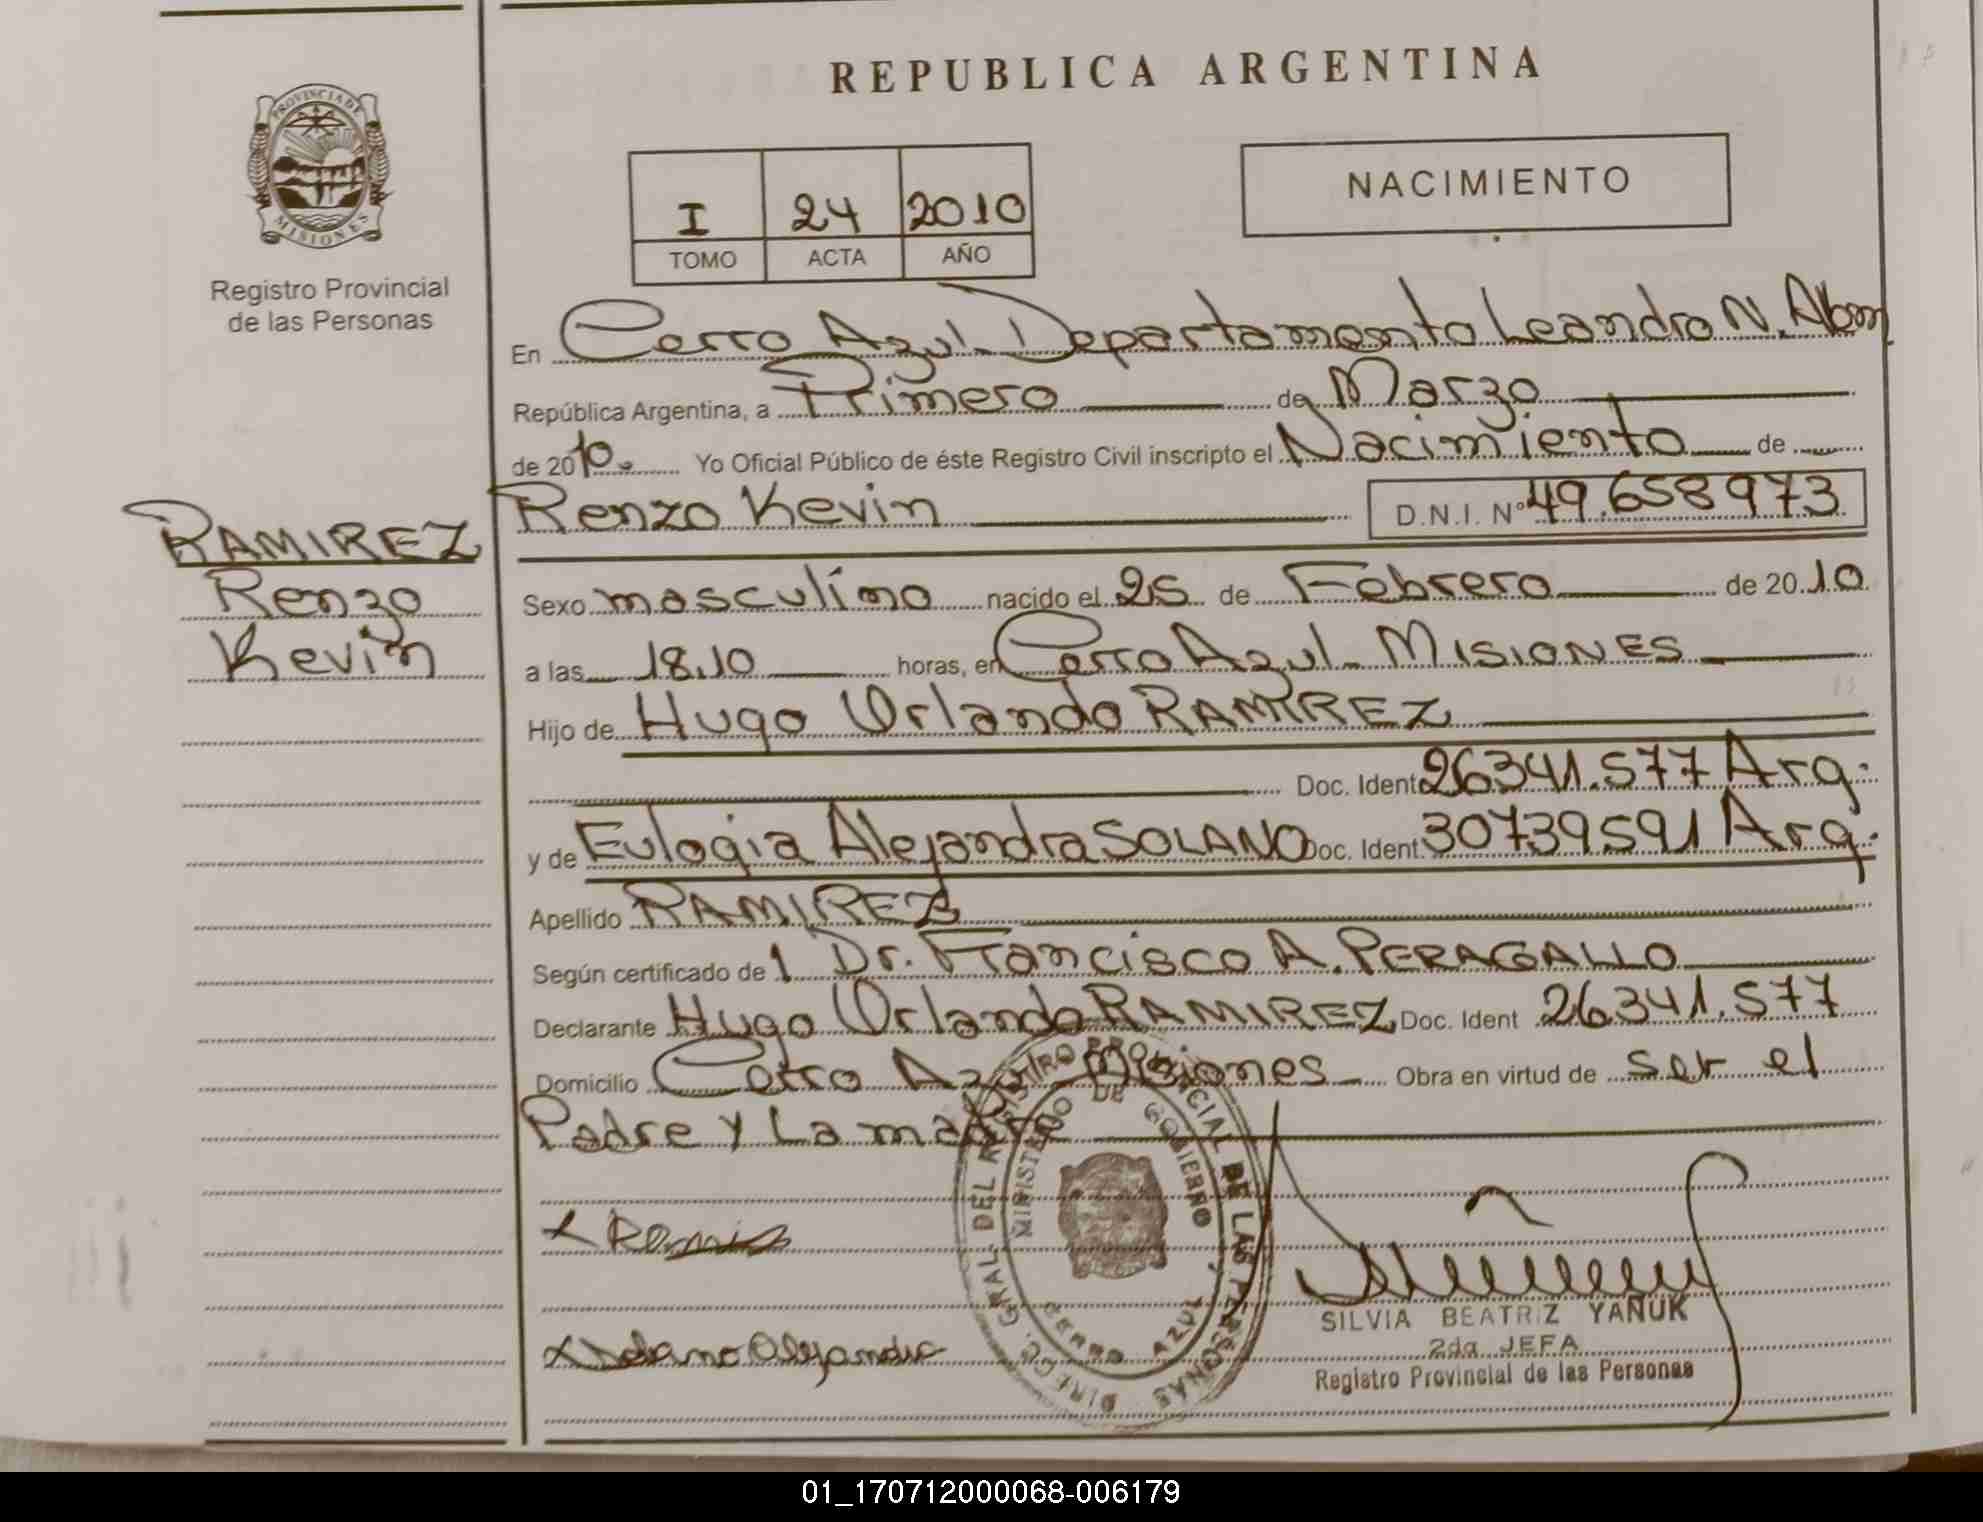 REPUBLICA ARGENTINA
PROVINCIA DE
MISIONES
Registro Provincial
de las Personas
I 24 2010
TOMO ACTA AÑO
NACIMIENTO
En Cerro Azul Departamento Leandro N. Alem
República Argentina, a Primero de Marzo
de 2010. Yo Oficial Público de éste Registro Civil inscripto el Nacimiento de
Renzo Kevin D.N.I. Nº 49.658973
RAMIREZ
Renzo
Kevin
Sexo masculino nacido el 25 de Febrero de 2010
a las 18.10 horas, en Cerro Azul - MISIONES
Hijo de Hugo Orlando RAMIREZ
Doc. Ident. 26341.577 Arg.
y de Eulogia Alejandra SOLANO Doc. Ident. 30739591 Arg.
Apellido RAMIREZ
Según certificado de l Dr. Francisco A. PERAGALLO
Declarante Hugo Orlando RAMIREZ Doc. Ident 26341.577
Domicilio Cerro Azul Misiones Obra en virtud de ser el
Padre y La madre
DIREC. GRAL. DEL REGISTRO PROVINCIAL DE LAS PERSONAS
MINISTERIO DE GOBIERNO
CERRO AZUL
x Solano Alejandra
SILVIA BEATRIZ YAÑUK
2da JEFA
Registro Provincial de las Personas
01_170712000068-006179